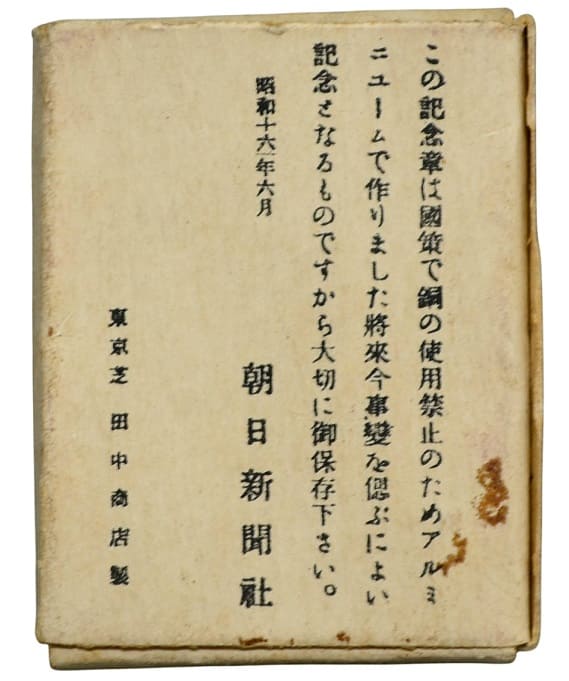 この記念章は國策で銅の使用禁止のためアルミ
ニュームで作りました將來今事變を偲ぶによい
記念となるものですから大切に御保存下さい。
昭和十六年六月
朝日新聞社
東京芝 田中商店製